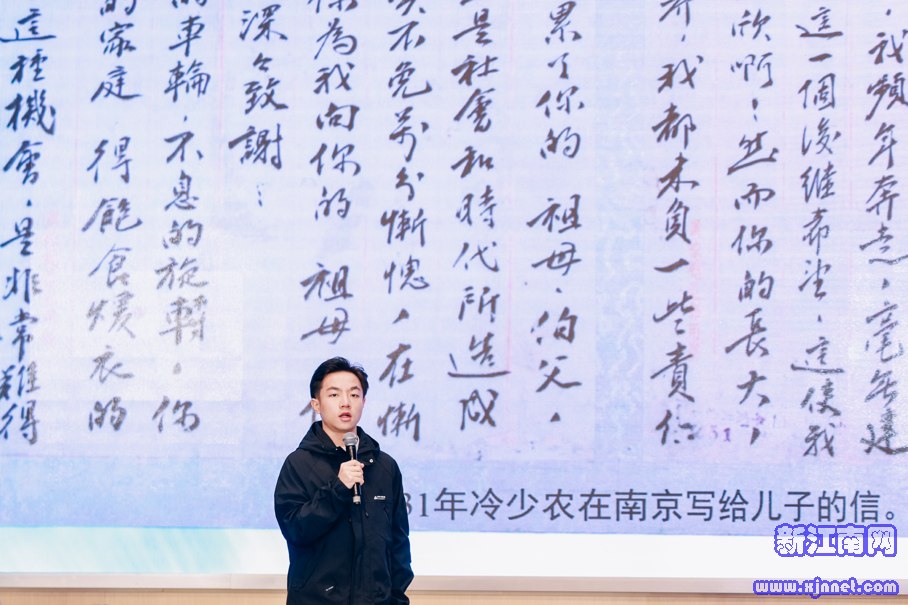 我頻年奔走，毫無建
這一個後继希望，這使我
欣啊，然而你的長大，
年，我都未負一些責任
累了你的祖母、伯父，
是社會和時代所造成
不免萬分慚愧，在慚
你為我向你的祖母
深深致謝……
的車輪，不息的旋轉，你
的家庭 得飽食煖衣的
這種機會，是非常難得
31年冷少农在南京写给儿子的信。
新江南网
www.xjnnet.com